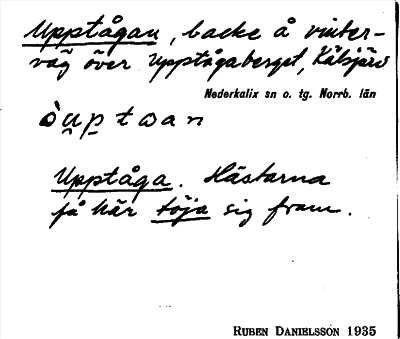 Upptågan, backe å vinter-
väg över Upptågaberget, Kälsjärv
Nederkalix sn o. tg. Norrb. län
Upptåga. Hästarna
få här töja sig fram.
RUBEN DANIELSSON 1935